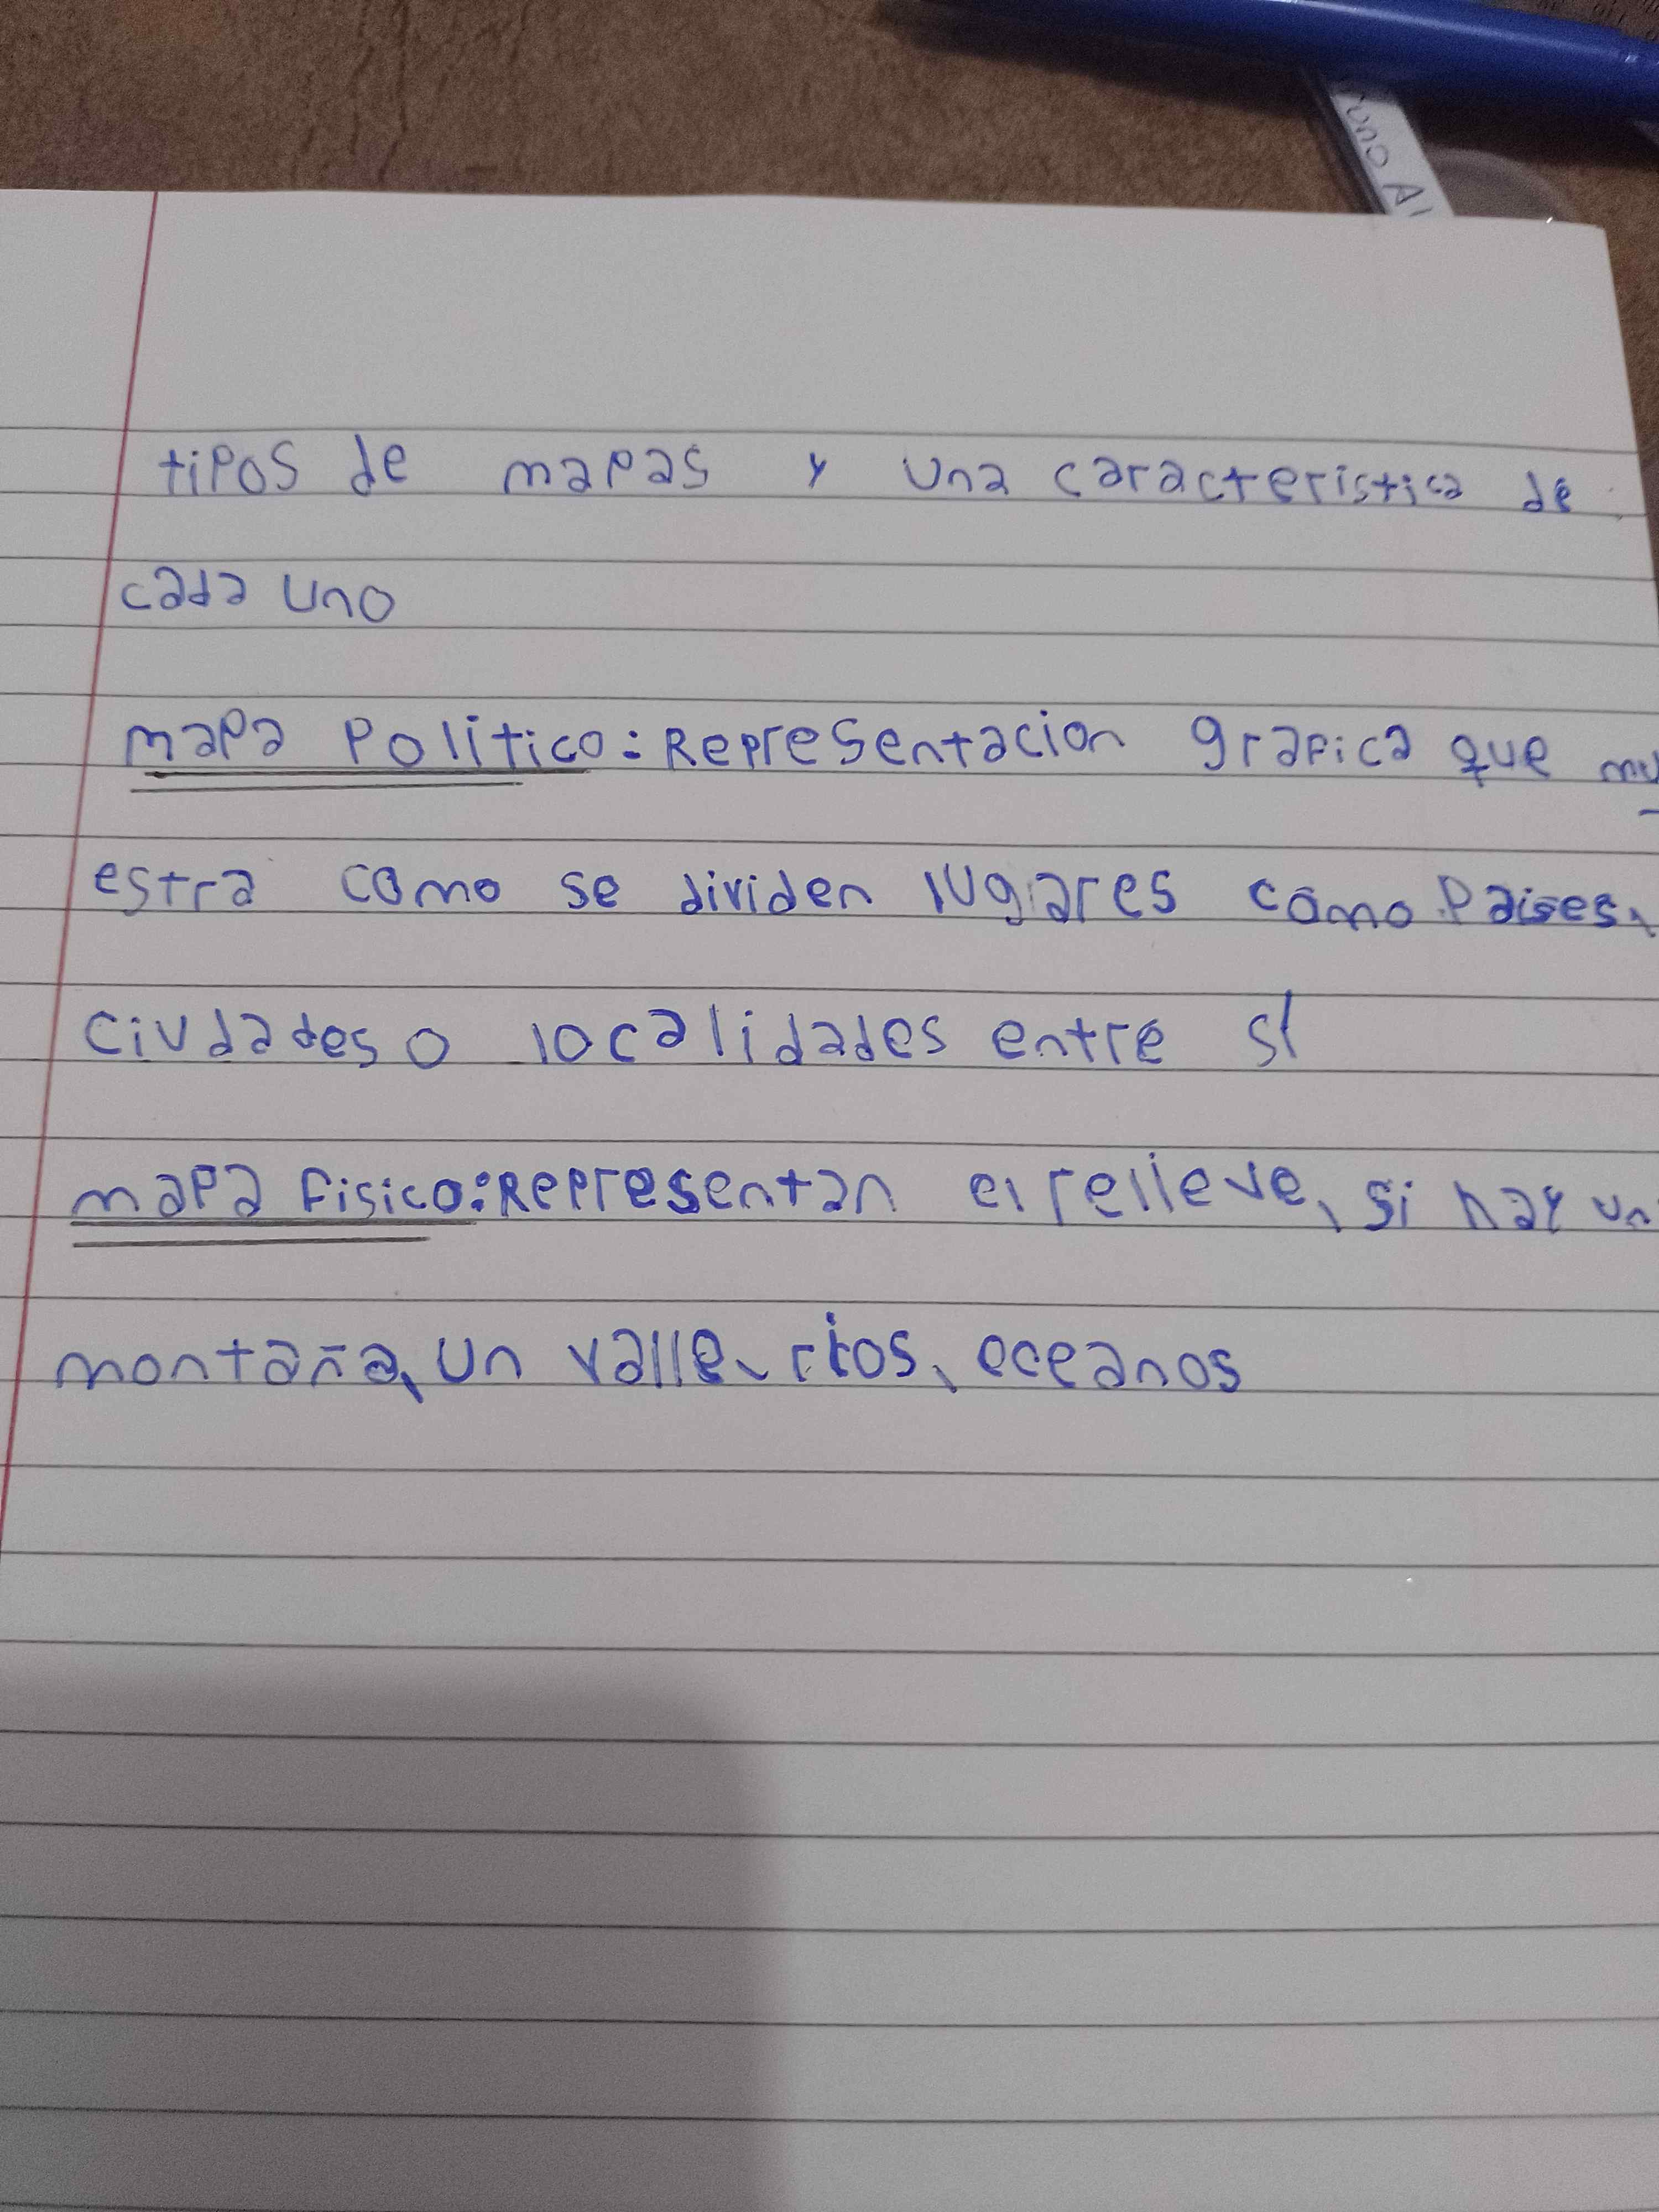 tipos de mapas y una caracteristica de
cada uno
mapa Politico: Representacion grafica que mu
estra como se dividen lugares como Paises,
ciudades o localidades entre sí
mapa Fisico: Representan el relieve, si hay un
montaña, un valle, rios, oceanos